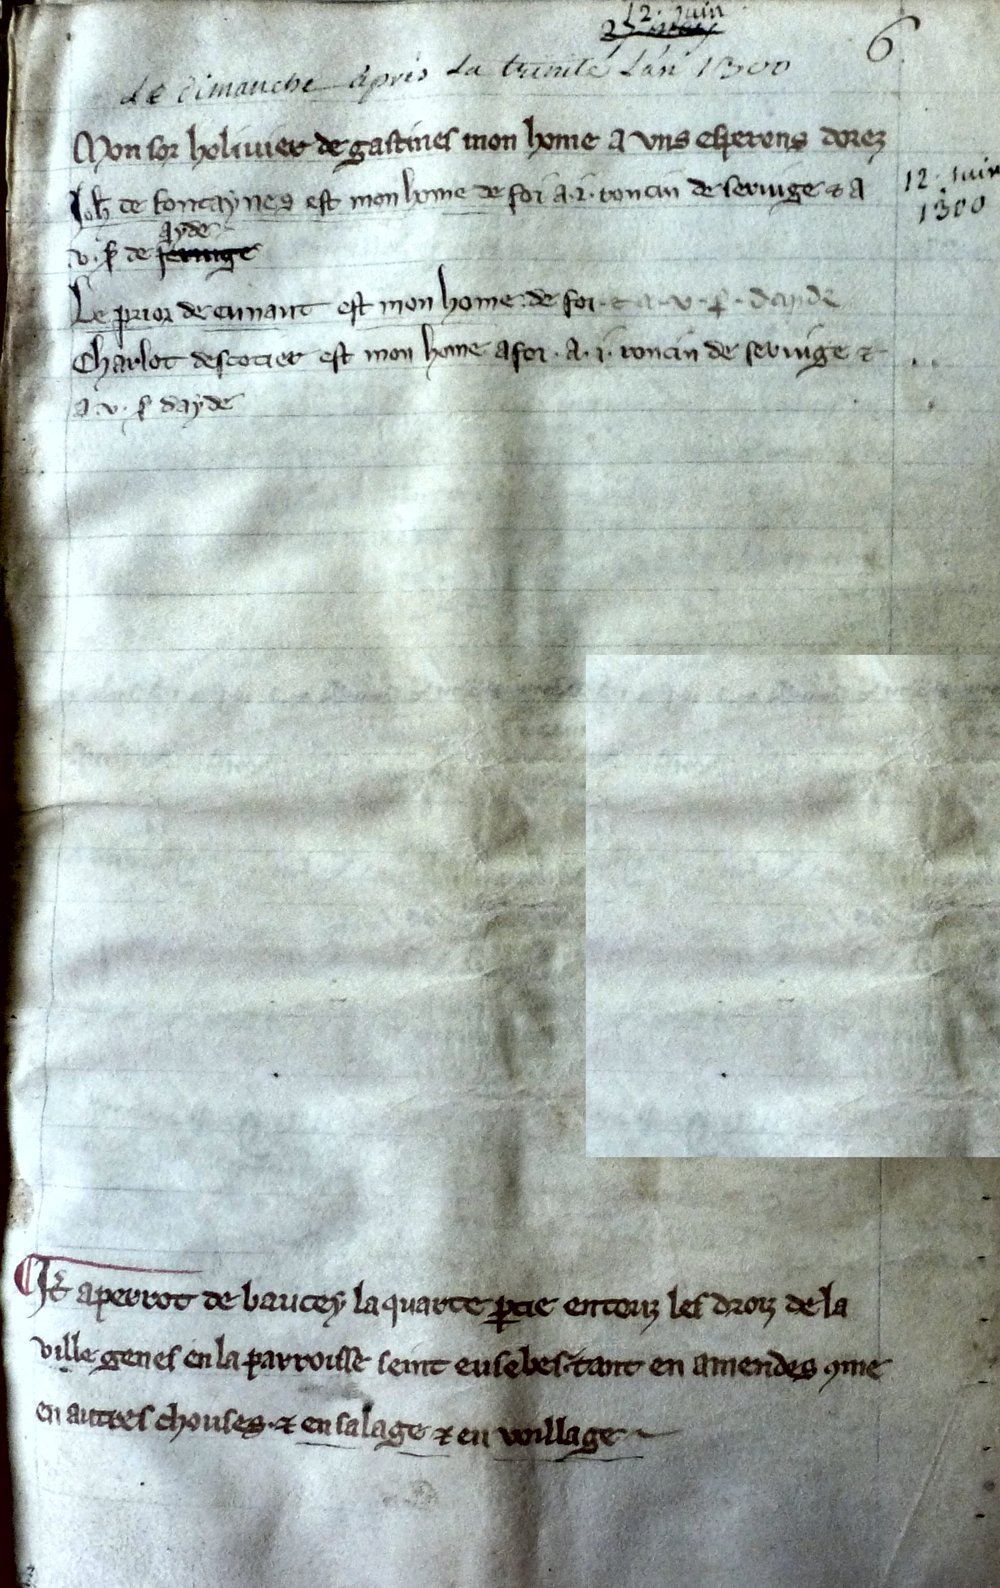 12. juin
6
Le dimanche après la trinité L'an 1300
Mon sor holiuier de gastines mon home a vns esperens dorez
Joh de fontaynes est mon home de foi .a.i. roncin de seruige & a
12. juin
1300
ayde
.v. s de seruige
Le prior de cunant est mon home de foi . & a . v . s . dayde
Charlot descotier est mon home a foi . a . i . roncin de seruige &
a .v. s dayde
It a perrot de baucey la quarte ptie entouz les droiz de la
ville genes en la parroisse seint eusebes . tant en amendes 9me
en autres chouses . & en salage & en voillage